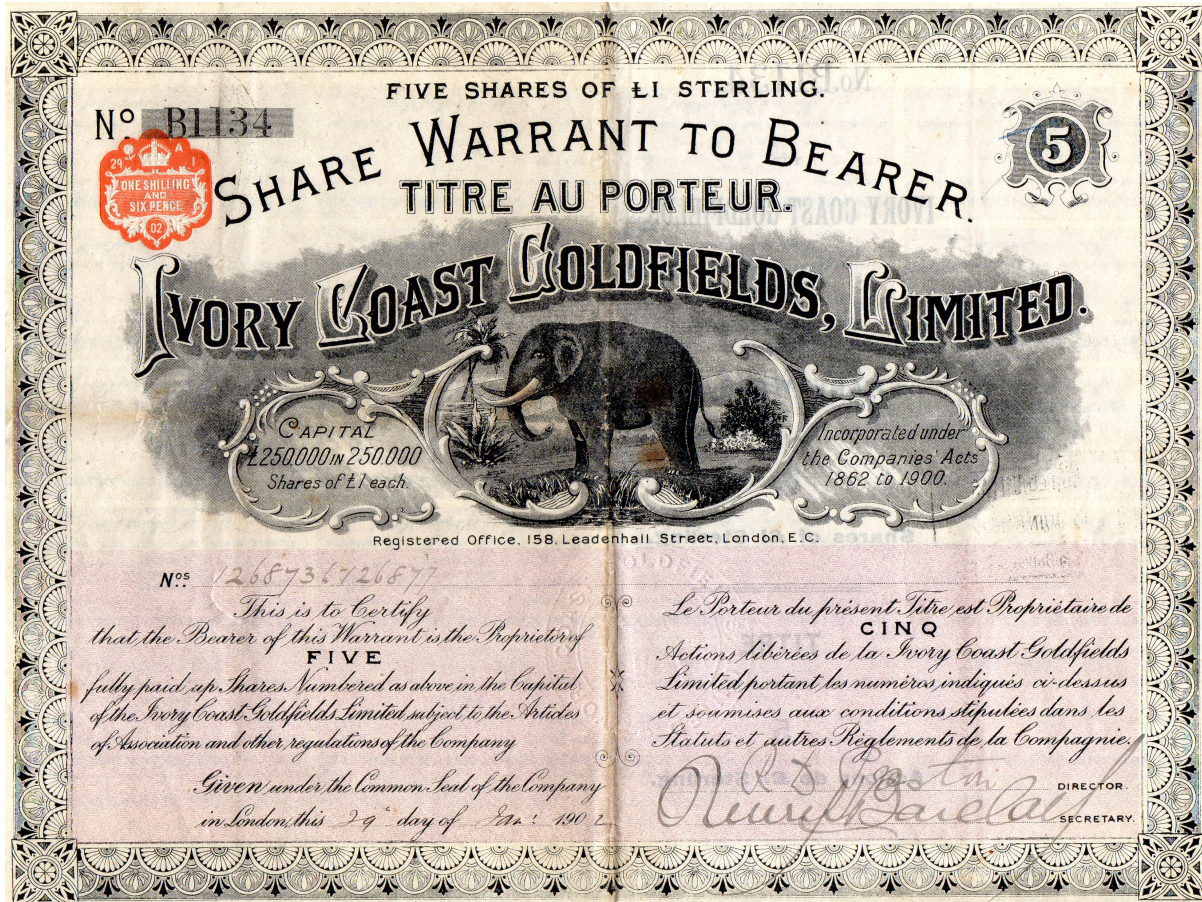 FIVE SHARES OF £1 STERLING.
Nº B1134
5
SHARE WARRANT TO BEARER.
29 A 1
ONE SHILLING
AND
SIX PENCE
02
TITRE AU PORTEUR.
IVORY COAST GOLDFIELDS, LIMITED.
CAPITAL
£250.000 IN 250.000
Shares of £1 each.
Incorporated under
the Companies Acts
1862 to 1900.
Registered Office, 158, Leadenhall Street, London, E.C.
Nos. 126873 / 126877
This is to Certify
that the Bearer of this Warrant is the Proprietor of
FIVE
fully paid up Shares Numbered as above in the Capital
of the Ivory Coast Goldfields Limited subject to the Articles
of Association and other regulations of the Company
Given under the Common Seal of the Company
in London, this 29th day of Jan: 1902
Le Porteur du présent Titre est Propriétaire de
CINQ
Actions libérées de la Ivory Coast Goldfields
Limited portant les numéros indiqués ci-dessus
et soumises aux conditions stipulées dans les
Statuts et autres Règlements de la Compagnie.
DIRECTOR.
SECRETARY.